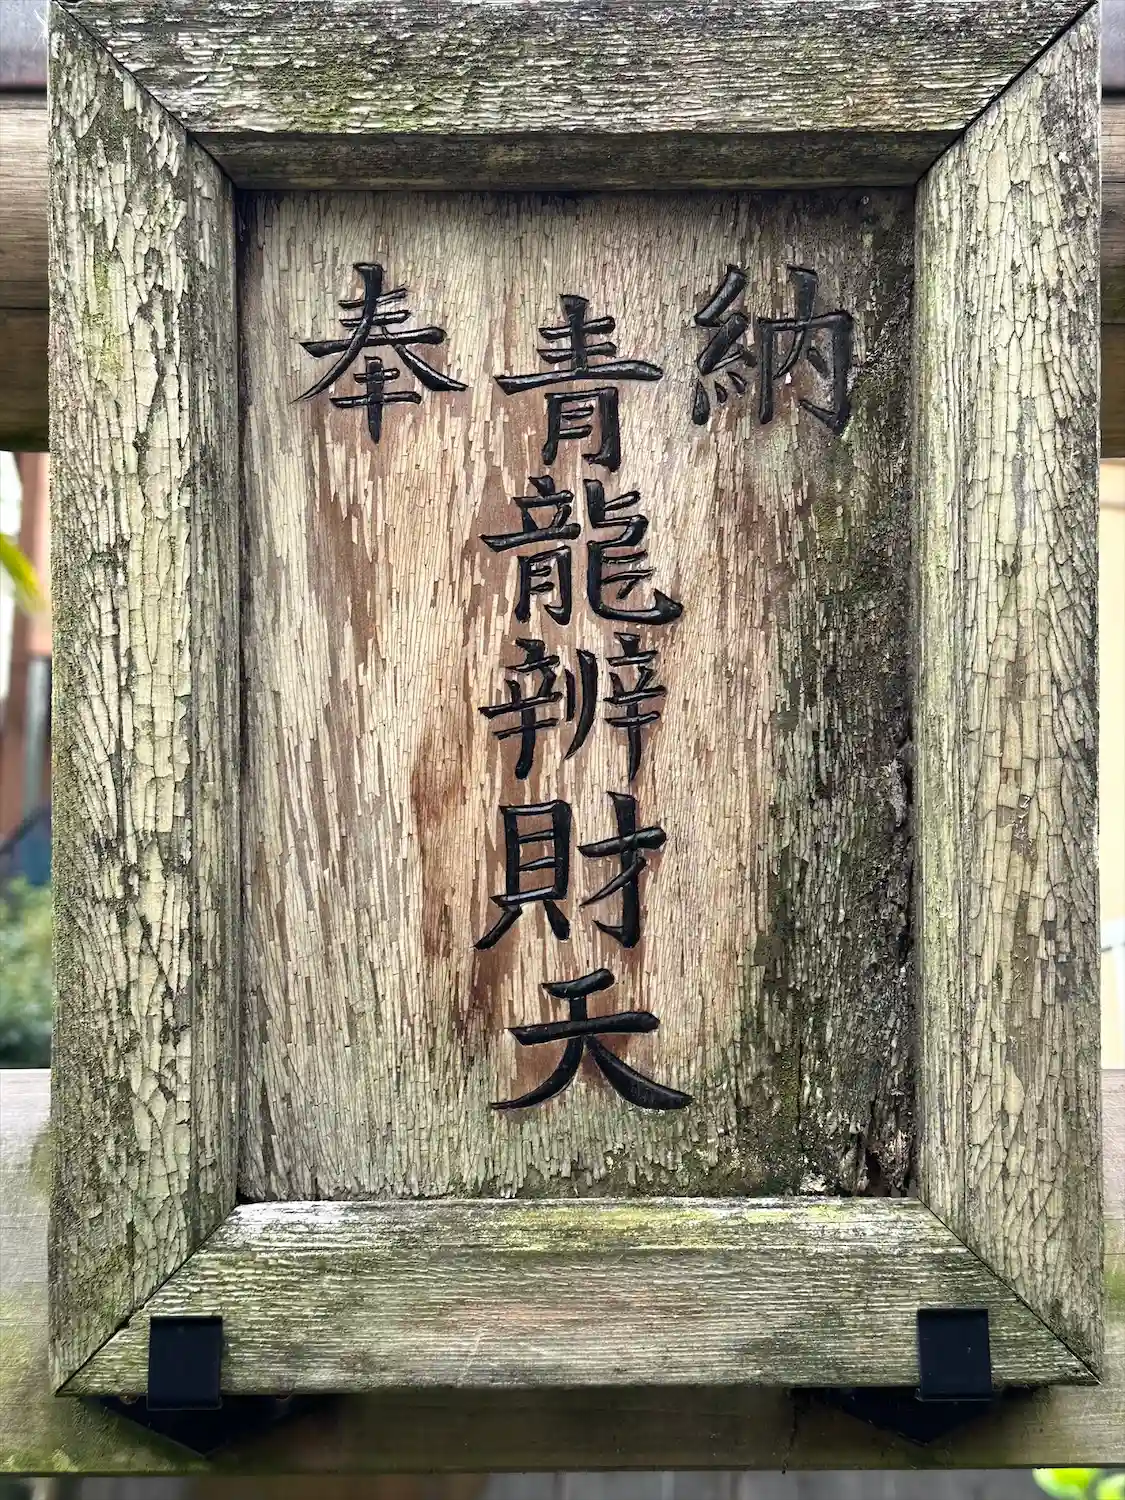 奉納
青龍辨財天